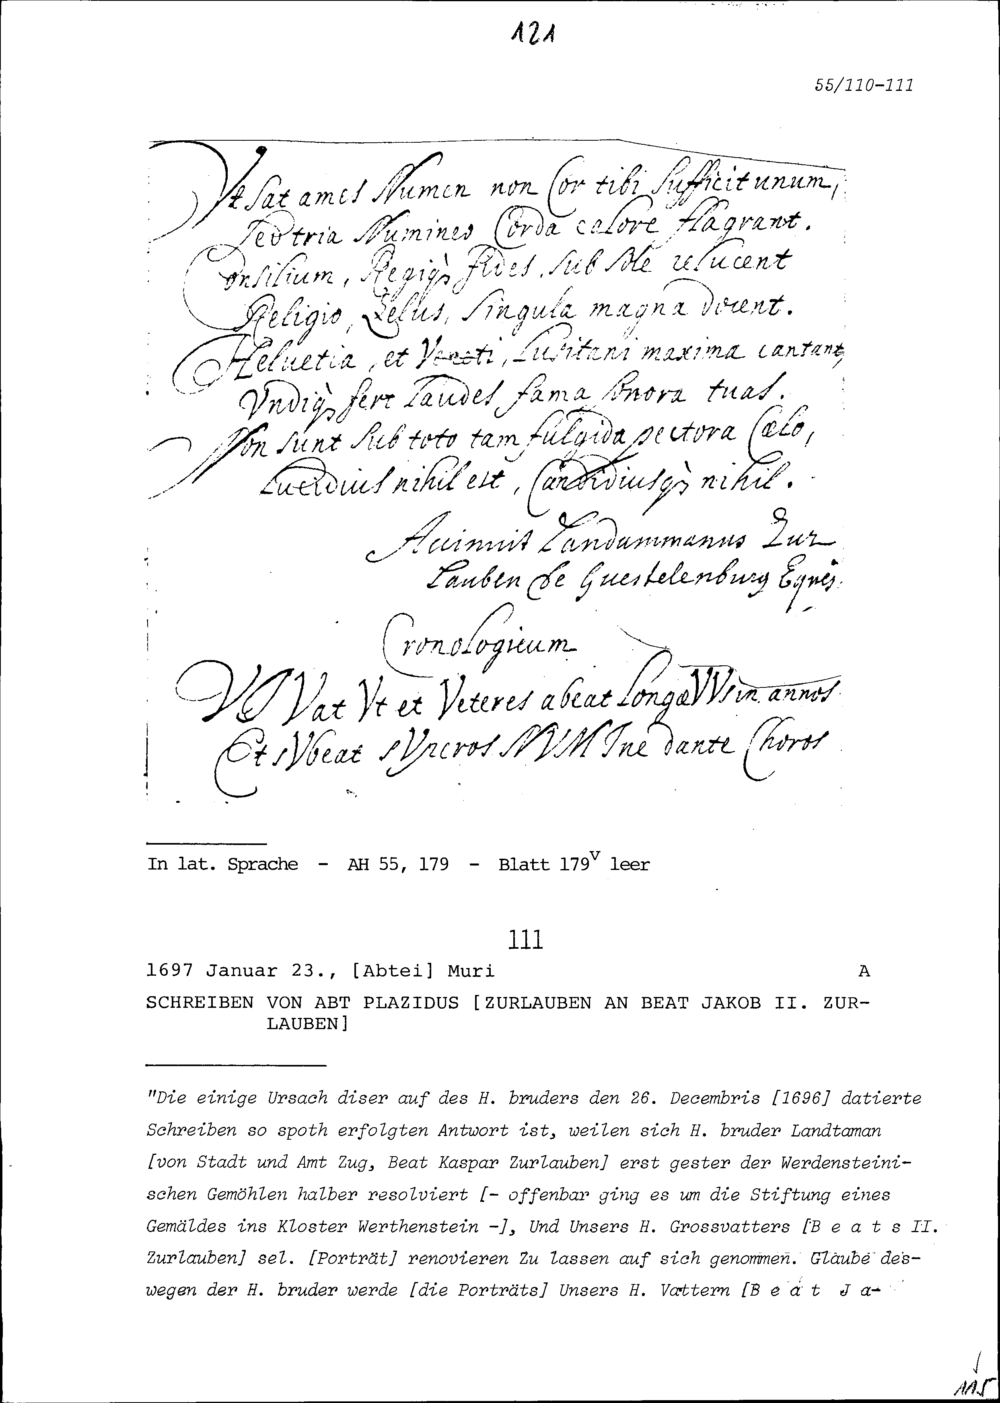 121
55/110-111
Vt Sat ames Numen non Cor tibi Sufficit unum,
Sed tria Numineo Corda calore flagrant.
Consilium, Regiqꝫ fides, sub sole relucent
Religio, Zelus, singula magna docent.
Heluetia, et Lusitani maxima cantant,
Vndiqꝫ fert laudes fama sonora tuas.
Non sunt sub toto tam fulgida pectora Cælo,
Lucidius nihil est, Candidiusqꝫ nihil.
Accinuit Landammanus Zur
Lauben de Guestelenburg Eques.
Cronologicum
Vt et Veteres abeat in annos
Et sVbeat dante Choros
In lat. Sprache - AH 55, 179 - Blatt 179v leer
111
1697 Januar 23., [Abtei] Muri A
SCHREIBEN VON ABT PLAZIDUS [ZURLAUBEN AN BEAT JAKOB II. ZUR-
LAUBEN]
"Die einige Ursach diser auf des H. bruders den 26. Decembris [1696] datierte
Schreiben so spoth erfolgten Antwort ist, weilen sich H. bruder Landtaman
[von Stadt und Amt Zug, Beat Kaspar Zurlauben] erst gester der Werdensteini-
schen Gemöhlen halber resolviert [- offenbar ging es um die Stiftung eines
Gemäldes ins Kloster Werthenstein -], Und Unsers H. Grossvatters [B e a t s II.
Zurlauben] sel. [Porträt] renovieren Zu lassen auf sich genommen. Glaube des-
wegen der H. bruder werde [die Porträts] Unsers H. Vattern [B e a t J a-
115